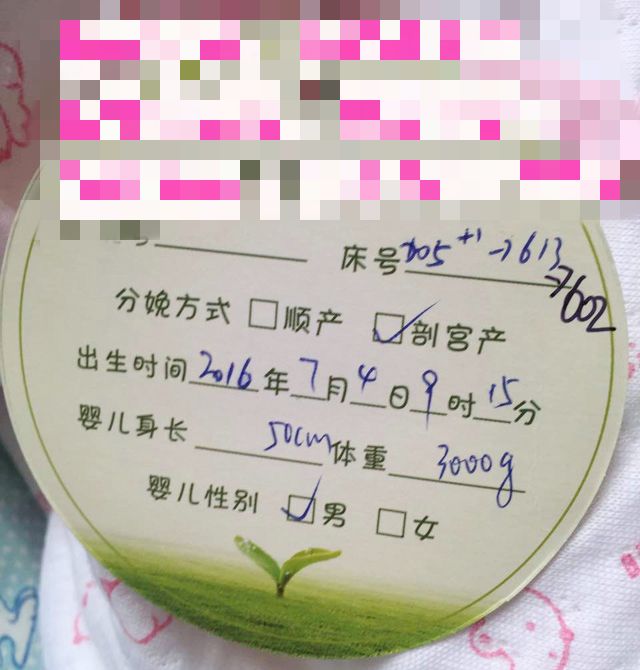 床号705+1→613
→602
分娩方式 □顺产 ☑剖宫产
出生时间2016年7月4日9时15分
婴儿身长 50cm体重 3000g
婴儿性别 ☑男 □女